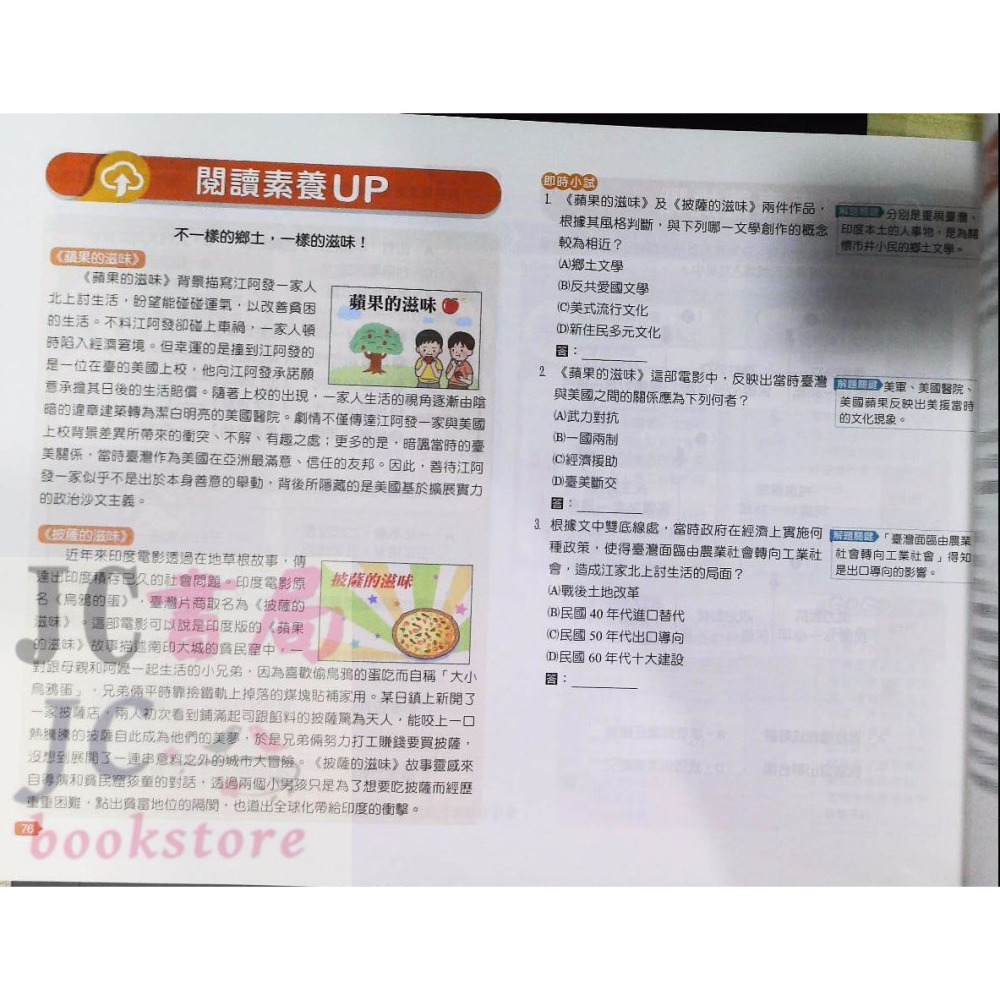 閱讀素養UP
不一樣的鄉土，一樣的滋味！
《蘋果的滋味》
《蘋果的滋味》背景描寫江阿發一家人
北上討生活，盼望能碰碰運氣，以改善貧困
的生活。不料江阿發卻碰上車禍，一家人頓
時陷入經濟窘境。但幸運的是撞到江阿發的
是一位在臺的美國上校，他向江阿發承諾願
意承擔其日後的生活賠償。隨著上校的出現，一家人生活的視角逐漸由陰
暗的違章建築轉為潔白明亮的美國醫院。劇情不僅傳達江阿發一家與美國
上校背景差異所帶來的衝突、不解、有趣之處；更多的是，暗諷當時的臺
美關係，當時臺灣作為美國在亞洲最滿意、信任的友邦。因此，善待江阿
發一家似乎不是出於本身善意的舉動，背後所隱藏的是美國基於擴展實力
的政治沙文主義。
蘋果的滋味
《披薩的滋味》
近年來印度電影透過在地草根故事，傳
達出印度積存已久的社會問題。印度電影原
名《烏鴉的蛋》，臺灣片商取名為《披薩的
滋味》。這部電影可以說是印度版的《蘋果
的滋味》故事描述南印大城的貧民窟中，一
對跟母親和阿嬤一起生活的小兄弟，因為喜歡偷烏鴉的蛋吃而自稱「大小
烏鴉蛋」，兄弟倆平時靠撿鐵軌上掉落的煤塊貼補家用。某日鎮上新開了
一家披薩店，兩人初次看到鋪滿起司跟餡料的披薩驚為天人，能咬上一口
熱騰騰的披薩自此成為他們的美夢，於是兄弟倆努力打工賺錢要買披薩，
沒想到展開了一連串意料之外的城市大冒險。《披薩的滋味》故事靈感來
自導演和貧民窟孩童的對話，透過兩個小男孩只是為了想要吃披薩而經歷
重重困難，點出貧富地位的隔閡，也道出全球化帶給印度的衝擊。
披薩的滋味
76
JC書局
JC
bookstore
即時小試
1. 《蘋果的滋味》及《披薩的滋味》兩件作品，
根據其風格判斷，與下列哪一文學創作的概念
較為相近？
(A)鄉土文學
(B)反共愛國文學
(C)美式流行文化
(D)新住民多元文化
答：
解題關鍵 分別是重視臺灣、
印度本土的人事物，是為關
懷市井小民的鄉土文學。
2. 《蘋果的滋味》這部電影中，反映出當時臺灣
與美國之間的關係應為下列何者？
(A)武力對抗
(B)一國兩制
(C)經濟援助
(D)臺美斷交
答：
解題關鍵 美軍、美國醫院、
美國蘋果反映出美援當時
的文化現象。
3. 根據文中雙底線處，當時政府在經濟上實施何
種政策，使得臺灣面臨由農業社會轉向工業社
會，造成江家北上討生活的局面？
(A)戰後土地改革
(B)民國 40 年代進口替代
(C)民國 50 年代出口導向
(D)民國 60 年代十大建設
答：
解題關鍵 「臺灣面臨由農業
社會轉向工業社會」得知
是出口導向的影響。